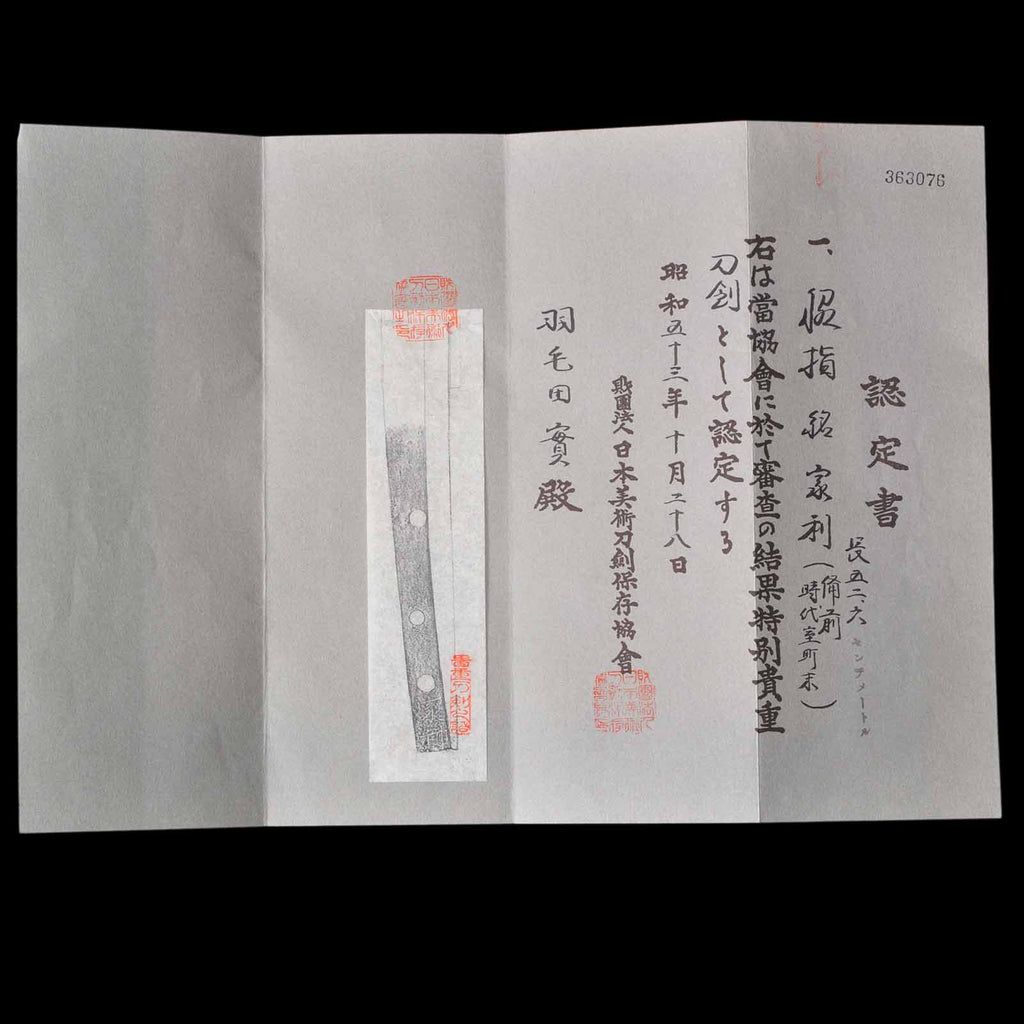 363076
認定書
長五二、六 センチメートル
一、脇指 銘 家利(備前 時代室町末)
右は當協會に於て審査の結果特別貴重
刀剣として認定する
昭和五十三年十月二十八日
財團法人日本美術刀劍保存協會
羽毛田實殿